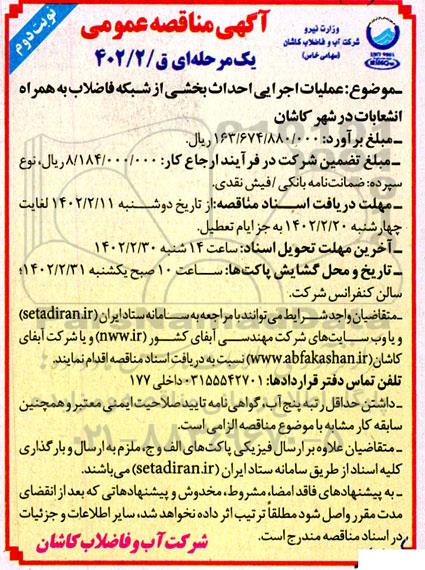 نوبت دوم
آگهی مناقصه عمومی
یک مرحله‌ای ق/۴۰۲/۲
وزارت نیرو
شرکت آب و فاضلاب کاشان
(سهامی خاص)
ـ موضوع: عملیات اجرایی احداث بخشی از شبکه فاضلاب به همراه
انشعابات در شهر کاشان
ـ مبلغ برآورد: ۱۶۳/۶۷۴/۸۸۰/۰۰۰ ریال.
ـ مبلغ تضمین شرکت در فرآیند ارجاع کار: ۸/۱۸۴/۰۰۰/۰۰۰ ریال، نوع
سپرده: ضمانت‌نامه بانکی / فیش نقدی.
ـ مهلت دریافت اسناد مناقصه: از تاریخ دوشنبه ۱۴۰۲/۲/۱۱ لغایت
چهارشنبه ۱۴۰۲/۲/۲۰ به جز ایام تعطیل.
ـ آخرین مهلت تحویل اسناد: ساعت ۱۴ شنبه ۱۴۰۲/۲/۳۰
ـ تاریخ و محل گشایش پاکت‌ها: ساعت ۱۰ صبح یکشنبه ۱۴۰۲/۲/۳۱؛
سالن کنفرانس شرکت.
ـ متقاضیان واجد شرایط می‌توانند با مراجعه به سامانه ستاد ایران (setadiran.ir)
و یا وب سایت‌های شرکت مهندسی آبفای کشور (nww.ir) و یا شرکت آبفای
کاشان (www.abfakashan.ir) نسبت به دریافت اسناد مناقصه اقدام نمایند.
تلفن تماس دفتر قراردادها: ۰۳۱۵۵۵۴۲۷۰۱ داخلی ۱۷۷
ـ داشتن حداقل رتبه پنج آب، گواهی نامه تایید صلاحیت ایمنی معتبر و همچنین
سابقه کار مشابه با موضوع مناقصه الزامی است.
ـ متقاضیان علاوه بر ارسال فیزیکی پاکت‌های الف و ج، ملزم به ارسال و بارگذاری
کلیه اسناد از طریق سامانه ستاد ایران (setadiran.ir) می‌باشند.
ـ به پیشنهادهای فاقد امضا، مشروط، مخدوش و پیشنهادهائی که بعد از انقضای
مدت مقرر واصل شود مطلقاً ترتیب اثر داده نخواهد شد، سایر اطلاعات و جزئیات
در اسناد مناقصه مندرج است.
شرکت آب و فاضلاب کاشان